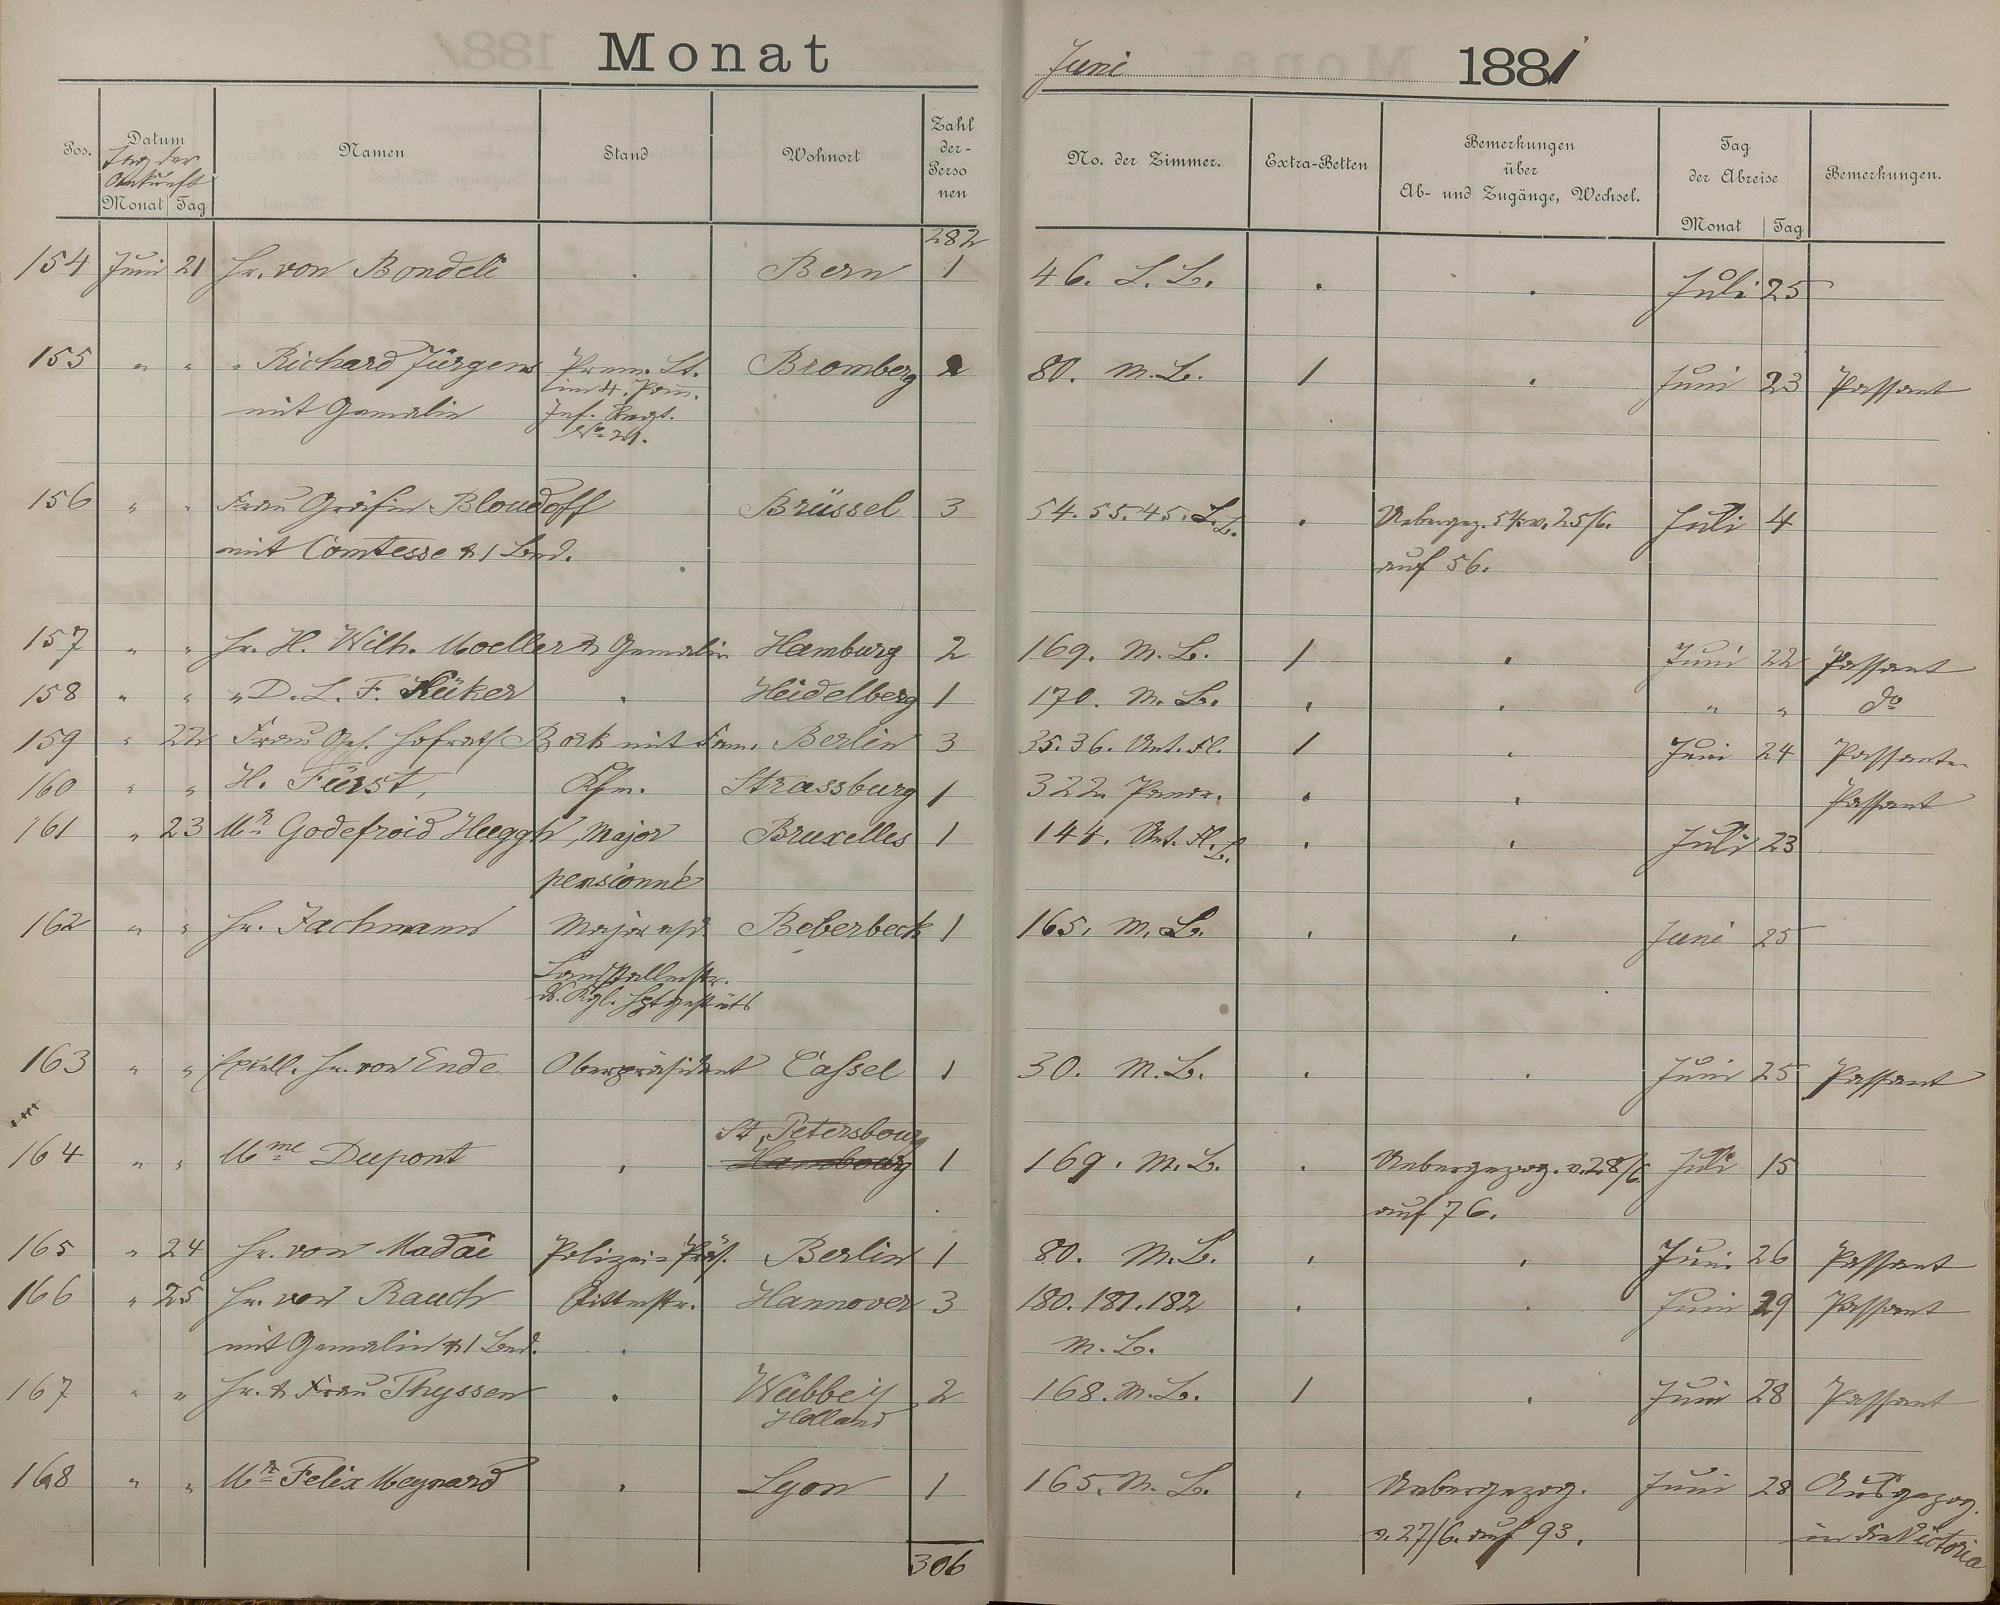 Monat Juni 1881
Pos. Datum Tag der Ankunft Monat Tag Namen Stand Wohnort Zahl der Personen No. der Zimmer. Extra-Betten Bemerkungen über Ab- und Zugänge, Wechsel. Tag der Abreise Monat Tag Bemerkungen.
282
154 Juni 21 Hr. von Bondeli . Bern 1 46. L. L. . . Juli 25
155 " " " Richard Jürgens Prem. Lt. Bromberg 2 80. M. L. 1 . Juni 23 Passant
im 4. Pom.
mit Gemalin Inf. Regt.
No 21.
156 " " Frau Gräfin Bloudoff Brüssel 3 54. 55. 45. L. L. . Uebergez. 54 v. 25/6. Juli 4
mit Comtesse & 1 Bed. auf 56.
157 " " Hr. H. Wilh. Moeller & Gemalin Hamburg 2 169. M. L. 1 . Juni 22 Passant
158 " " " D. L. F. Küker . Heidelberg 1 170. M. L. . . " " do
159 " 22 Frau Geh. Hofrath Bork mit Fam. Berlin 3 35. 36. Unt. Fl. 1 . Juni 24 Passanten
160 " " H. Fürst, Kfm. Strassburg 1 322. . . Passant
161 " 23 Mr Godefroid Huggh, Major Bruxelles 1 144. Unt. Fl. L. . . Juli 23
pensionné
162 " " Hr. Jachmann Major a/D Beberbeck 1 165. M. L. . . Juni 25
Landstallmstr.
d. Kgl. Hptgestüts
163 " " Excell. Hr. von Ende Oberpräsident Cassel 1 30. M. L. . . Juni 25 Passant
St. Petersbourg
164 " " Mme Dupont . Hambourg 1 169. M. L. . Uebergezog. v. 28/6 Juli 15
auf 76.
165 " 24 Hr. von Madai Polizei-Präs. Berlin 1 80. M. L. . . Juni 26 Passant
166 " 25 Hr. von Rauch Rittmstr. Hannover 3 180. 181. 182 . . Juni 29 Passant
mit Gemalin & 1 Bed. . M. L.
167 " " Hr. & Frau Thyssen . Wübbey 2 168. M. L. 1 . Juni 28 Passant
Holland
168 " " Mr Felix Meynard . Lyon 1 165. M. L. . Uebergezog. Juni 28 Ausgezog.
v. 27/6. auf 93. in die Victoria
306